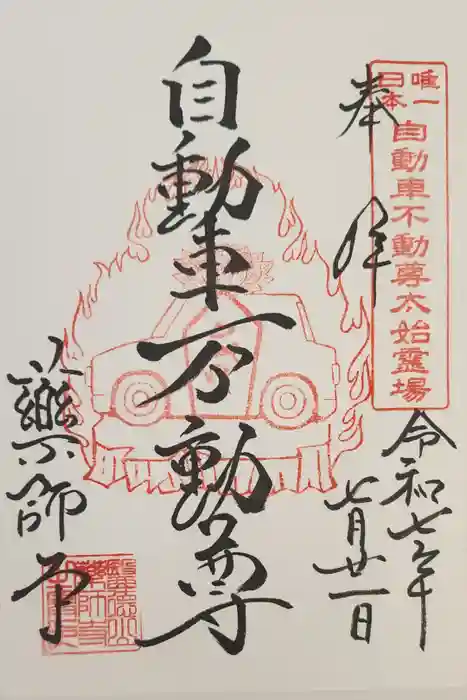 唯一
日本
自動車不動尊太始靈場
奉拝
令和七年
七月廿一日
自動車不動尊
藥師寺